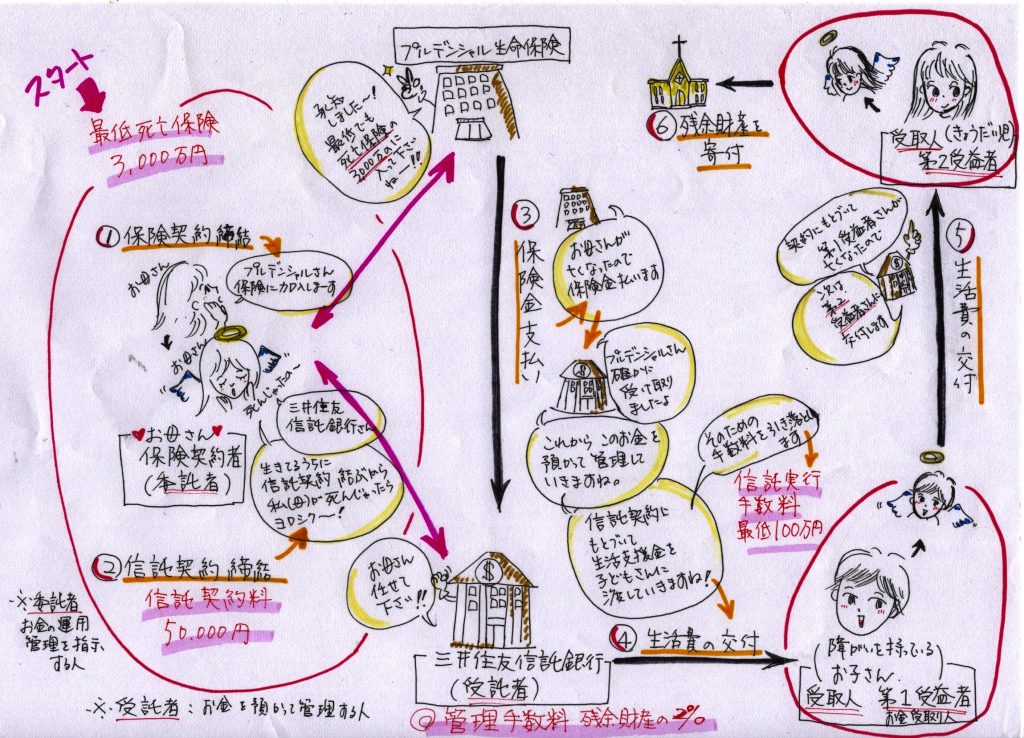 スタート
最低死亡保険
3,000万円
プルデンシャル生命保険
承知
しましたー!
最低でも
死亡保険の
3,000万のに
入って下さい
ねー!!
①保険契約締結
お母さん
プルデンシャルさん
保険に加入しまーす
お母さん
死んじゃったの〜
お母さん
保険契約者
(委託者)
三井住友
信託銀行さん
生きてるうちに
信託契約 結ぶから
私(母)が死んじゃったら
ヨロシク〜!
②信託契約締結
信託契約料
50,000円
お母さん
任せて
下さい!!
※委託者
お金の運用
管理を指示
する人
※受託者:お金を預かって管理する人
③保険金支払い
お母さんが
亡くなったので
保険金払います
プルデンシャルさん
確かに
受け取り
ましたよ
これから このお金を
預かって管理して
いきますね。
信託契約に
もとづいて
生活支援金を
子どもさんに
渡していきますね!
そのための
手数料を引き落とし
ます
信託実行
手数料
最低100万円
三井住友信託銀行
(受託者)
◎管理手数料 残余財産の2%
④生活費の交付
(障がいを持っている)
お子さん
受取人 第1受益者
お金受取り人
⑤生活費の交付
契約にもとづいて
第1受益者さんが
亡くなったので
次は
第2
受益者さんに
交付します
受取人(きょうだい児)
第2受益者
⑥残余財産を
寄付